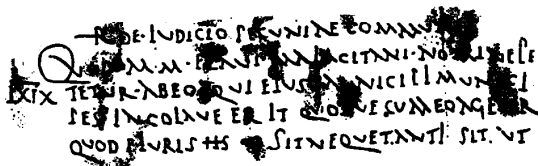 R·DE·IUDICIO PECUNIAE COMMUN
QUOD M·M·FLAVI MALACITANI·NOMINE PE
LXIX TETUR·ABEO QUI EIUS MUNICIPI MUNICI
PES INCOLAVE ERIT QUODVE CUM EO AGETUR
QUOD PLURIS HS SIT NEQUE TANTI SIT·UT